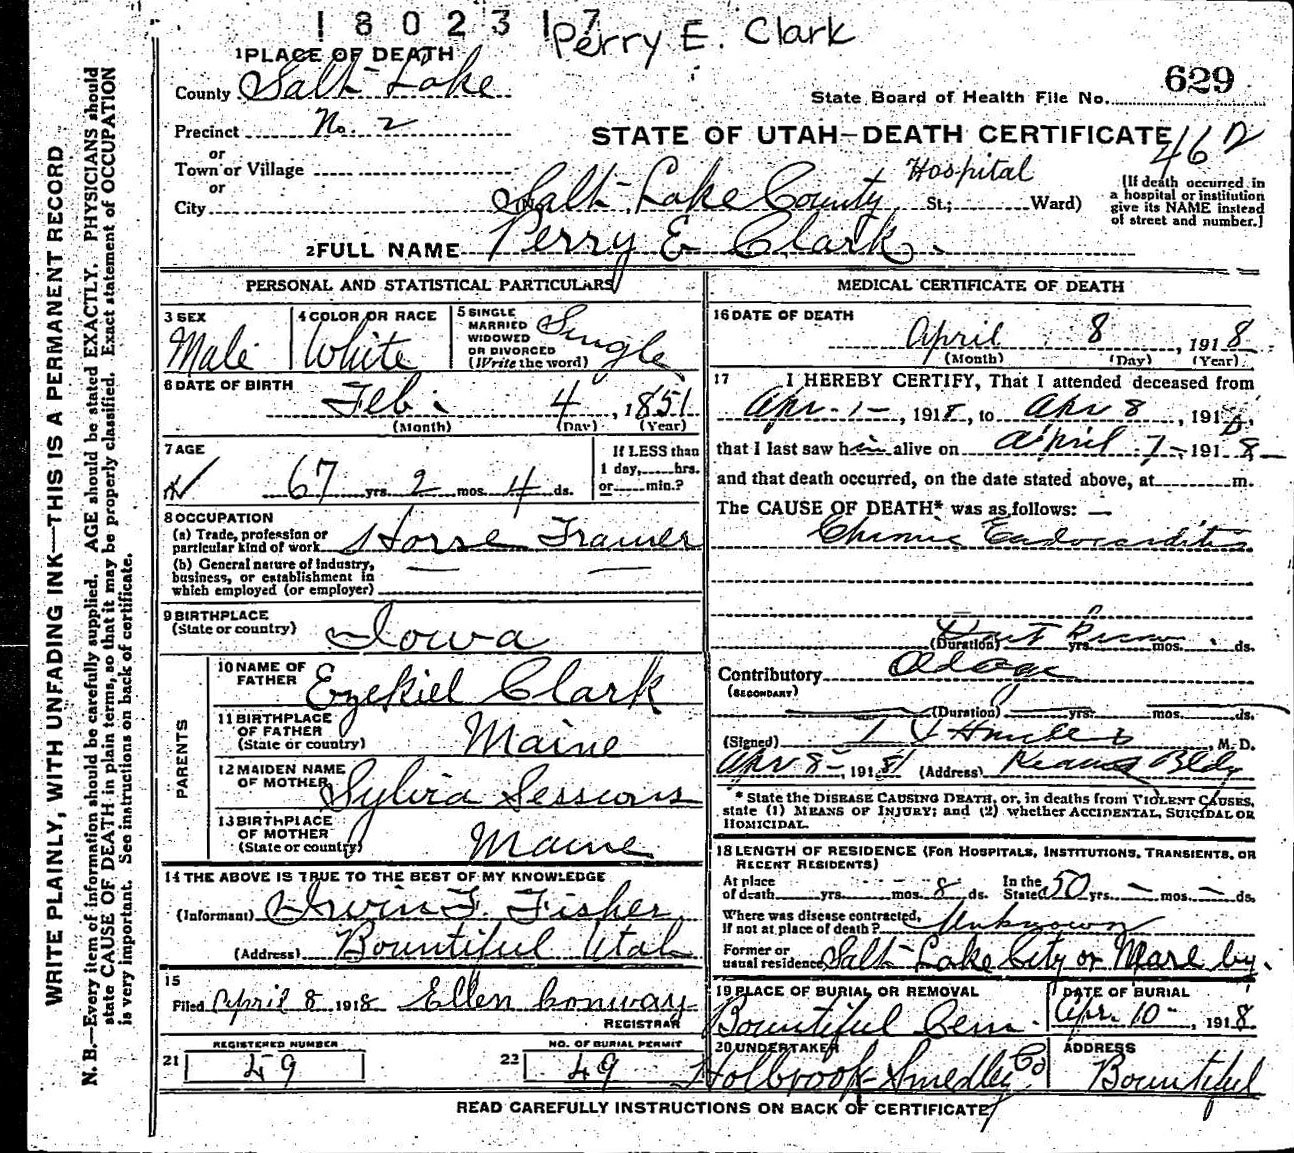 1802317
Perry E. Clark
1 PLACE OF DEATH
County Salt Lake
State Board of Health File No. 629
Precinct No. 2
STATE OF UTAH—DEATH CERTIFICATE
46
or
Town or Village
or
City Salt Lake County Hospital St.; Ward)
(If death occurred in
a hospital or institution
give its NAME instead
of street and number.)
2 FULL NAME Perry E Clark.
PERSONAL AND STATISTICAL PARTICULARS
3 SEX
Male
4 COLOR OR RACE
White
5 SINGLE
MARRIED
WIDOWED
OR DIVORCED
(Write the word)
Single
6 DATE OF BIRTH
Feb. 4, 1851
(Month) (Day) (Year)
7 AGE
67 yrs. 2 mos. 4 ds.
If LESS than
1 day, hrs.
or min.?
8 OCCUPATION
(a) Trade, profession or
particular kind of work Horse Trainer
(b) General nature of Industry,
business, or establishment in
which employed (or employer)
9 BIRTHPLACE
(State or country) Iowa
PARENTS
10 NAME OF
FATHER Ezekiel Clark
11 BIRTHPLACE
OF FATHER
(State or country) Maine
12 MAIDEN NAME
OF MOTHER Sylvia Sessions
13 BIRTHPLACE
OF MOTHER
(State or country) Maine
14 THE ABOVE IS TRUE TO THE BEST OF MY KNOWLEDGE
(Informant) Irwin F. Fisher
(Address) Bountiful Utah
15
Filed April 8 1918 Ellen Conway
REGISTRAR
REGISTERED NUMBER
21 49
NO. OF BURIAL PERMIT
22 49
MEDICAL CERTIFICATE OF DEATH
16 DATE OF DEATH
April 8, 1918
(Month) (Day) (Year)
17 I HEREBY CERTIFY, That I attended deceased from
Apr - 1 -, 1918, to Apr 8, 1918,
that I last saw him alive on April 7 - 1918 —
and that death occurred, on the date stated above, at m.
The CAUSE OF DEATH* was as follows: —
Chronic Endocarditis
Dont Know
(Duration) yrs. mos. ds.
Contributory Old age
(SECONDARY)
(Duration) yrs. mos. ds.
(Signed) M. D.
Apr 8 - 1918 (Address) Kearns Bldg
* State the DISEASE CAUSING DEATH, or, in deaths from VIOLENT CAUSES,
state (1) MEANS OF INJURY; and (2) whether ACCIDENTAL, SUICIDAL OR
HOMICIDAL.
18 LENGTH OF RESIDENCE (FOR HOSPITALS, INSTITUTIONS, TRANSIENTS, OR
RECENT RESIDENTS)
At place
of death yrs. mos. 8 ds.
In the
State 50 yrs. - mos. - ds.
Where was disease contracted,
if not at place of death? Unknown
Former or
usual residence Salt Lake City or Near by.
19 PLACE OF BURIAL OR REMOVAL
Bountiful Cem.
DATE OF BURIAL
Apr. 10 -, 1918
20 UNDERTAKER
Holbrook-Smedley Co
ADDRESS
Bountiful
READ CAREFULLY INSTRUCTIONS ON BACK OF CERTIFICATE
WRITE PLAINLY, WITH UNFADING INK—THIS IS A PERMANENT RECORD
N. B.—Every item of information should be carefully supplied. AGE should be stated EXACTLY. PHYSICIANS should
state CAUSE OF DEATH in plain terms, so that it may be properly classified. Exact statement of OCCUPATION
is very important. See instructions on back of certificate.